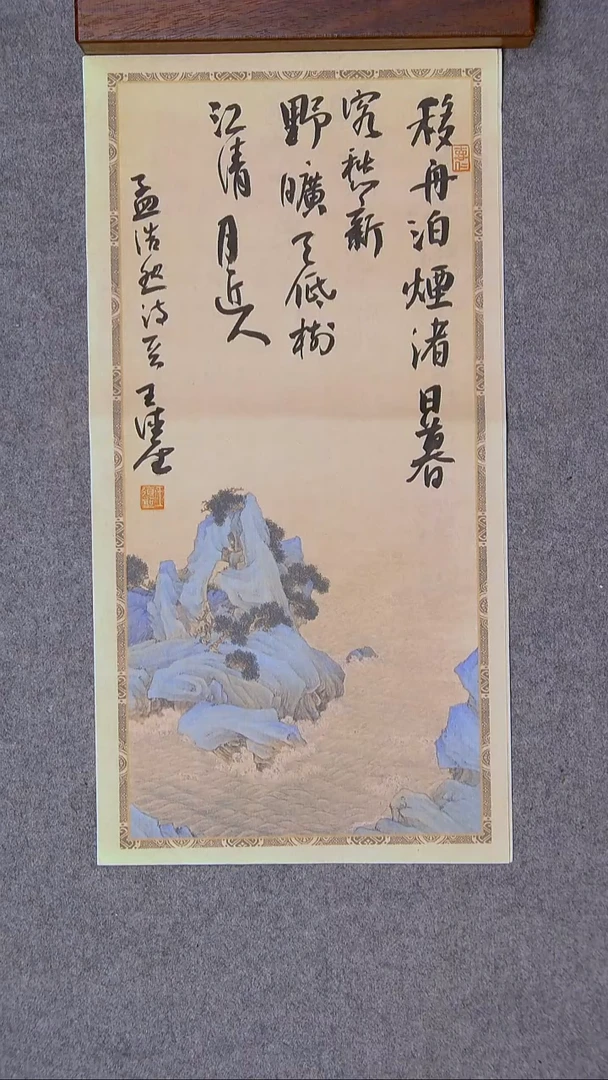 移舟泊煙渚日暮
客愁新
野曠天低樹
江清月近人
孟浩然诗一首